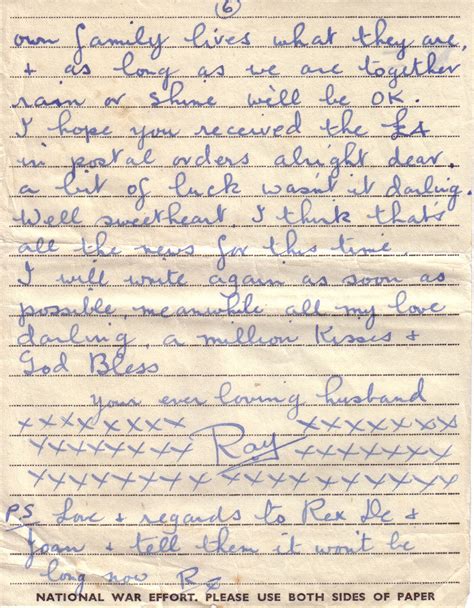 (6)
own family lives what they are,
& as long as we are together
rain or shine we'll be OK.
I hope you received the £4
in postal orders alright dear,
a bit of luck wasn't it darling.
Well sweetheart, I think that's
all the news for this time.
I will write again as soon as
possible, meanwhile all my love
darling, a million Kisses &
God Bless
Your ever loving husband
xxxxxxxx xxxxxxx
xxxxxx Ray xxxxxx
xxxxxxxxxxxxxxxxx
PS Love & regards to Rex De &
Joan & tell them it won't be
long now
NATIONAL WAR EFFORT. PLEASE USE BOTH SIDES OF PAPER